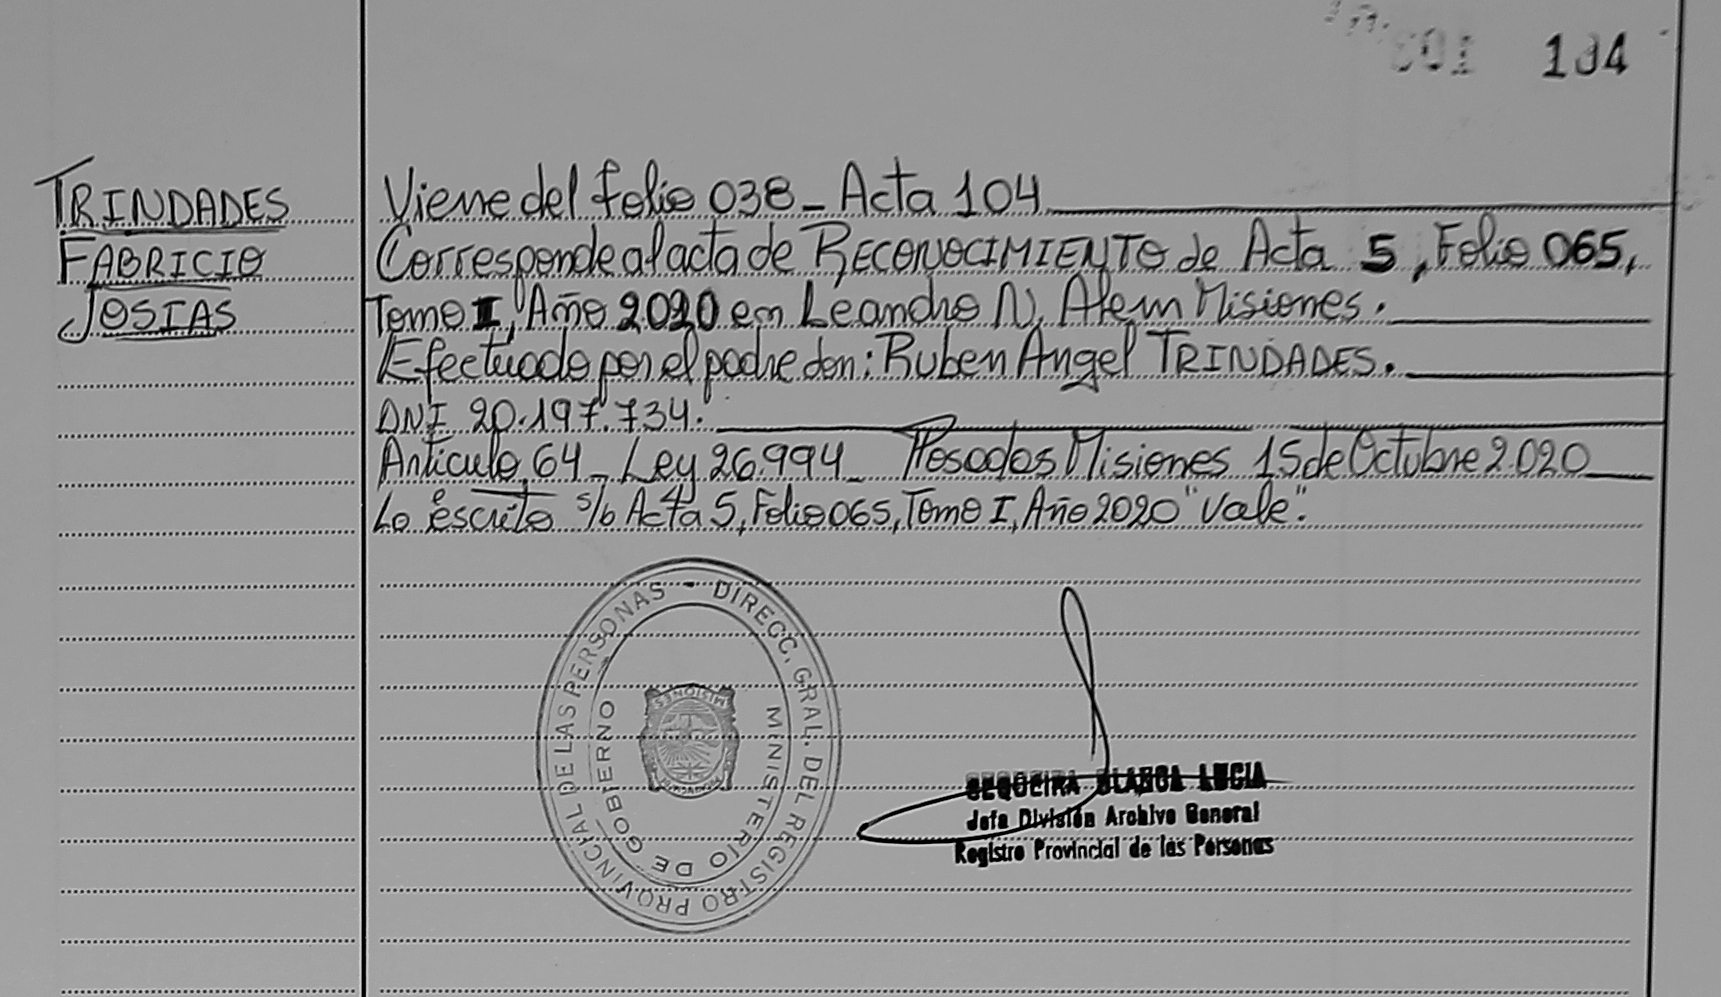 104
TRINDADES
FABRICIO
JOSIAS
Viene del folio 038 - Acta 104
Corresponde al acta de RECONOCIMIENTO de Acta 5, Folio 065,
Tomo I, Año 2020 en Leandro N. Alem Misiones.
Efectuado por el padre don: Ruben Angel TRINDADES.
DNI 20.197.734.
Articulo 64 - Ley 26.994 - Posadas Misiones 15 de Octubre 2.020
Lo escrito s/b Acta 5, Folio 065, Tomo I, Año 2020 "Vale".
DIRECC. GRAL. DEL REGISTRO PROVINCIAL DE LAS PERSONAS -
MINISTERIO DE GOBIERNO
MISIONES
SEQUEIRA BLANCA LUCIA
Jefa División Archivo General
Registro Provincial de las Personas